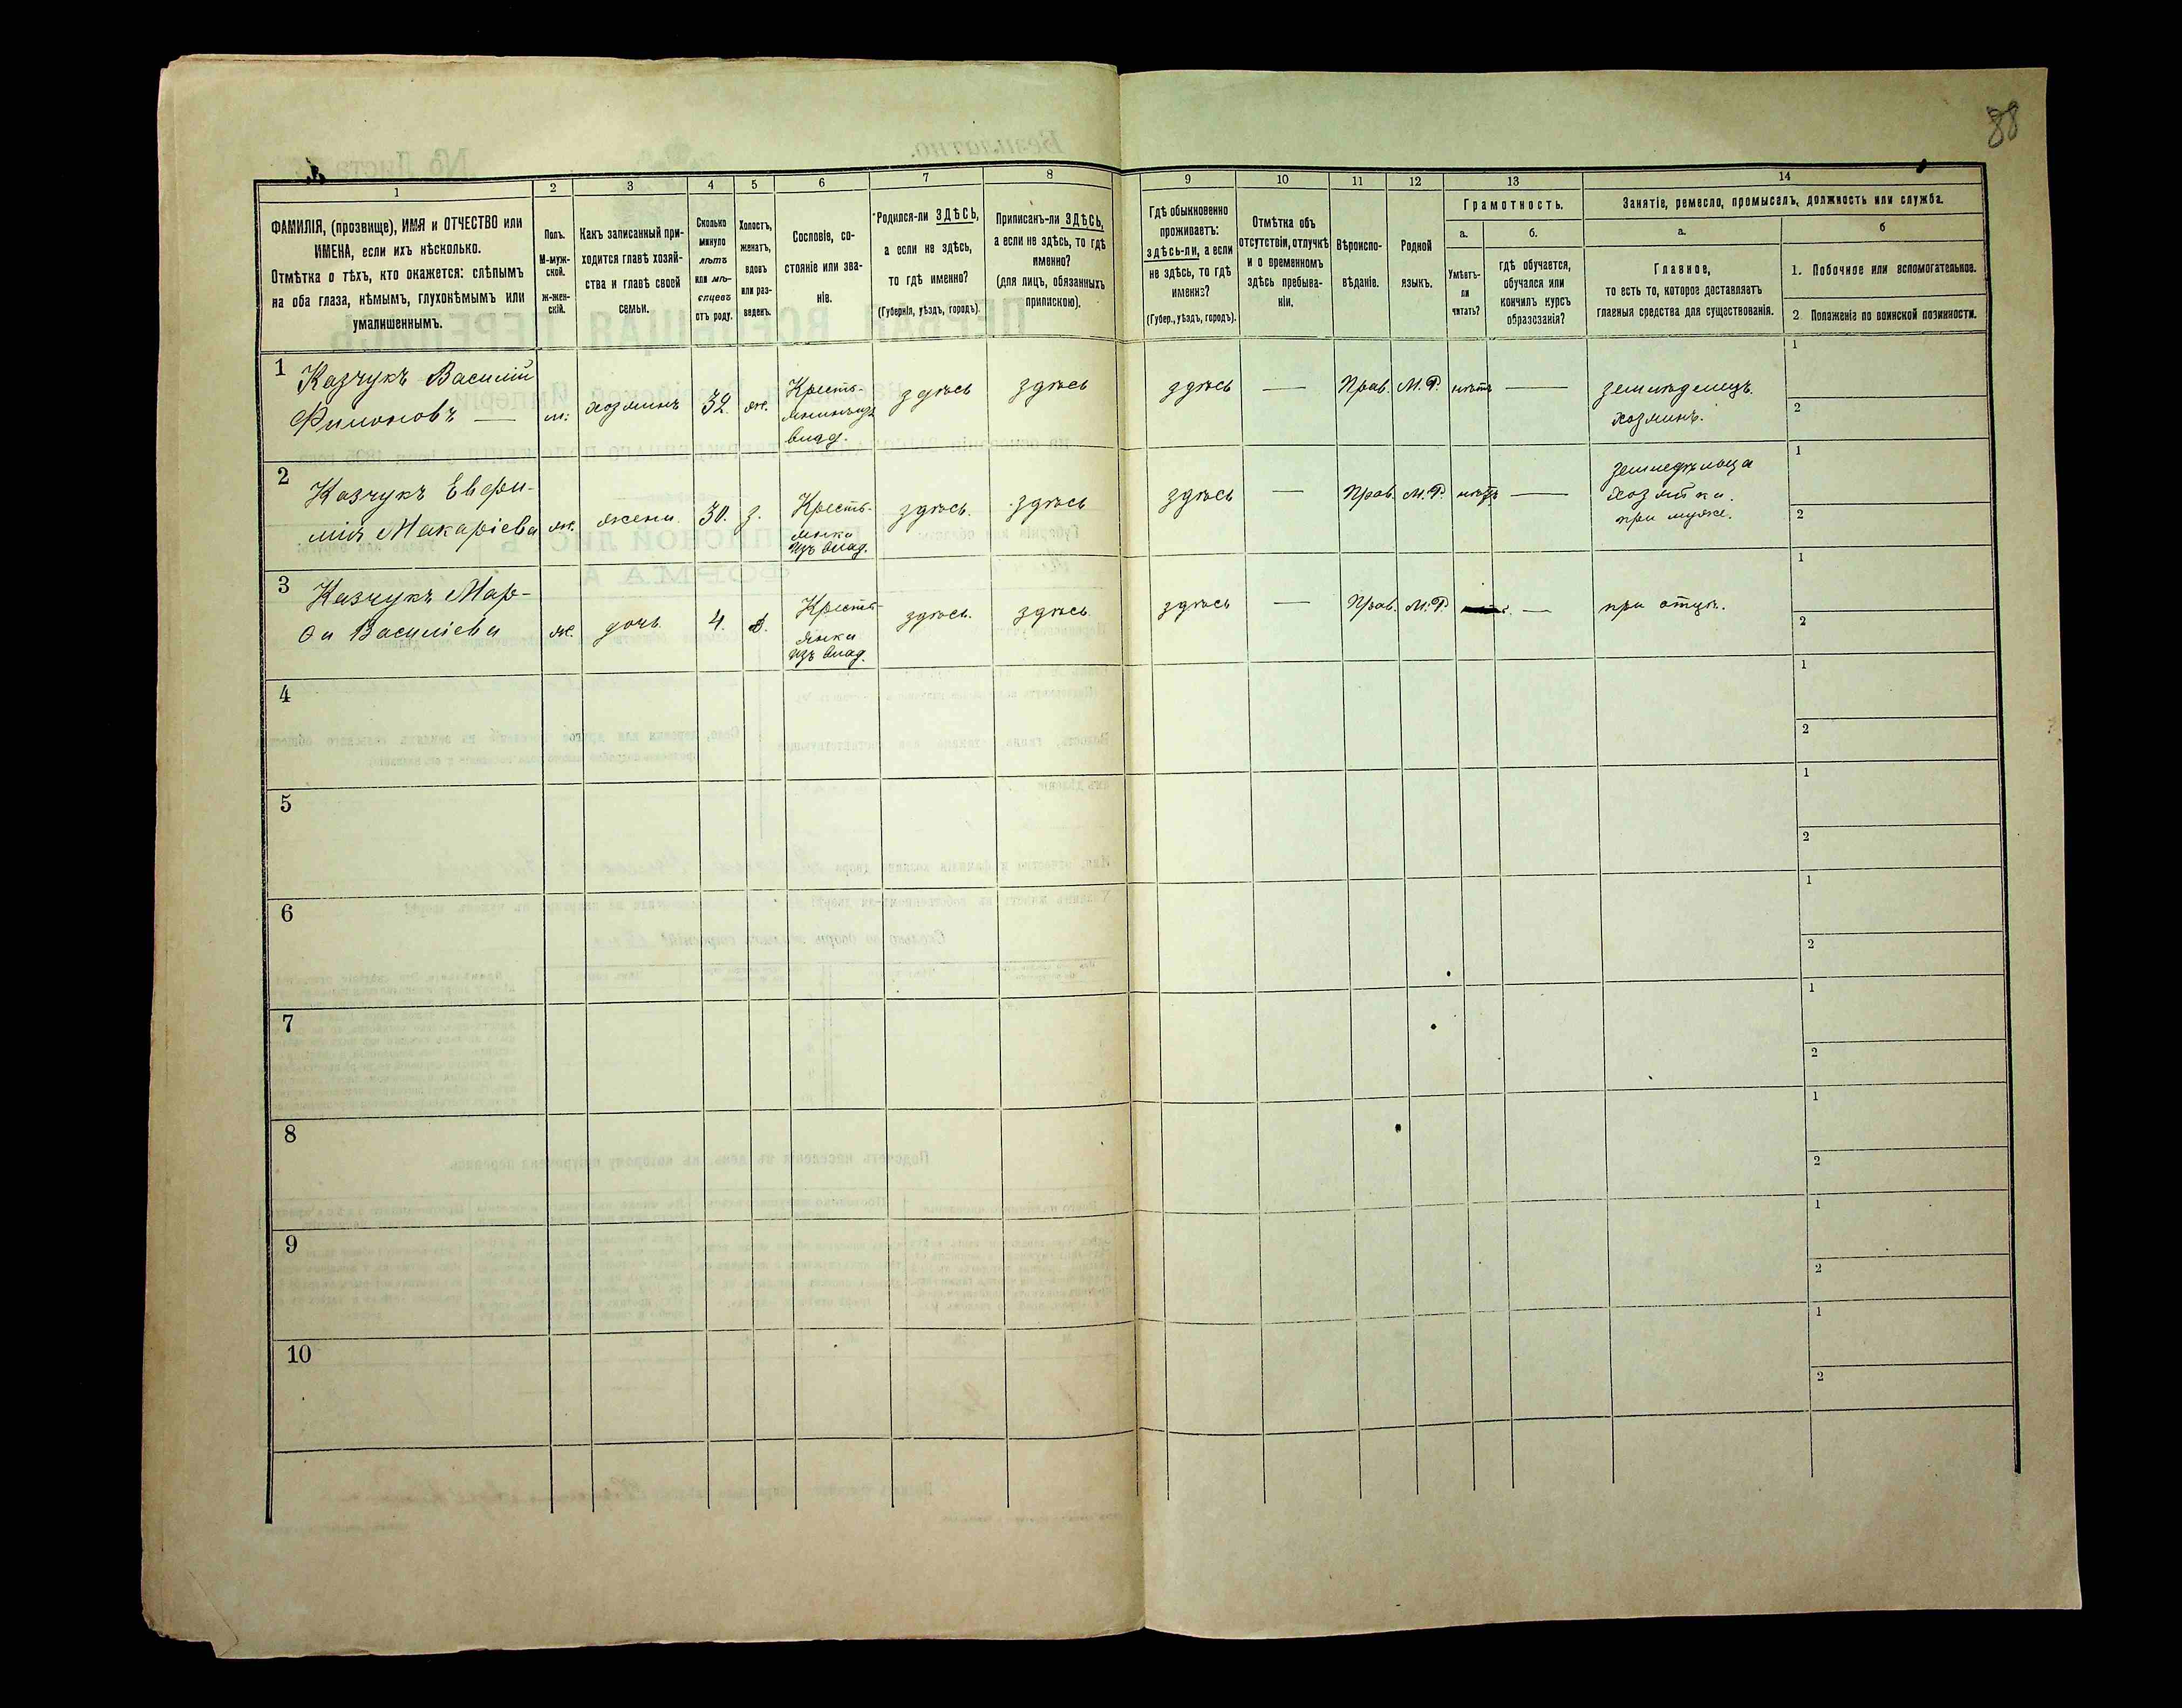 88
1
2
3
4
5
6
7
8
9
10
11
12
13
14
ФАМИЛІЯ, (прозвище), ИМЯ и ОТЧЕСТВО или
ИМЕНА, если ихъ нѣсколько.
Отмѣтка о тѣхъ, кто окажется: слѣпымъ
на оба глаза, нѣмымъ, глухонѣмымъ или
умалишеннымъ.
Полъ.
М-муж-
ской.
Ж-жен-
скій.
Какъ записанный при-
ходится главѣ хозяй-
ства и главѣ своей
семьи.
Сколько
минуло
лѣтъ
или мѣ-
сяцевъ
отъ роду.
Холостъ,
женатъ,
вдовъ
или раз-
веденъ.
Сословіе, со-
стояніе или зва-
ніе.
Родился-ли ЗДѢСЬ,
а если не здѣсь,
то гдѣ именно?
(Губернія, уѣздъ, городъ).
Приписанъ-ли ЗДѢСЬ,
а если не здѣсь, то гдѣ
именно?
(для лицъ, обязанныхъ
припискою).
Гдѣ обыкновенно
проживаетъ:
здѣсь-ли, а если
не здѣсь, то гдѣ
именно?
(Губер., уѣздъ, городъ).
Отмѣтка объ
отсутствіи, отлучкѣ
и о временномъ
здѣсь пребыва-
ніи.
Вѣроиспо-
вѣданіе.
Родной
языкъ.
Грамотность.
а.
Умѣетъ-
ли
читать?
б.
гдѣ обучается,
обучался или
кончилъ курсъ
образованія?
Занятіе, ремесло, промыселъ, должность или служба.
а.
Главное,
то есть то, которое доставляетъ
главныя средства для существованія.
б
1. Побочное или вспомогательное.
2. Положеніе по воинской повинности.
1
Казчукъ Василій
Филоновъ —
м.
хозяинъ
32.
ж.
Кресть-
янинъ изъ
влад.
здѣсь
здѣсь
здѣсь
—
Прав.
М.Р.
нѣтъ
—
земледелецъ.
хозяинъ.
1
2
2
Казчукъ Евфи-
мія Макаріева
ж.
жена
30.
з.
Кресть-
янка
изъ влад.
здѣсь.
здѣсь
здѣсь
—
Прав.
М.Р.
нѣтъ
—
земледѣлица
хозяйка.
при муже.
1
2
3
Казчукъ Мар-
ѳа Василіева
ж.
дочь
4.
Кресть-
янка
изъ влад.
здѣсь.
здѣсь.
здѣсь
—
Прав.
М.Р.
—
при отцѣ.
1
2
4
1
2
5
1
2
6
1
2
7
1
2
8
1
2
9
1
2
10
1
2